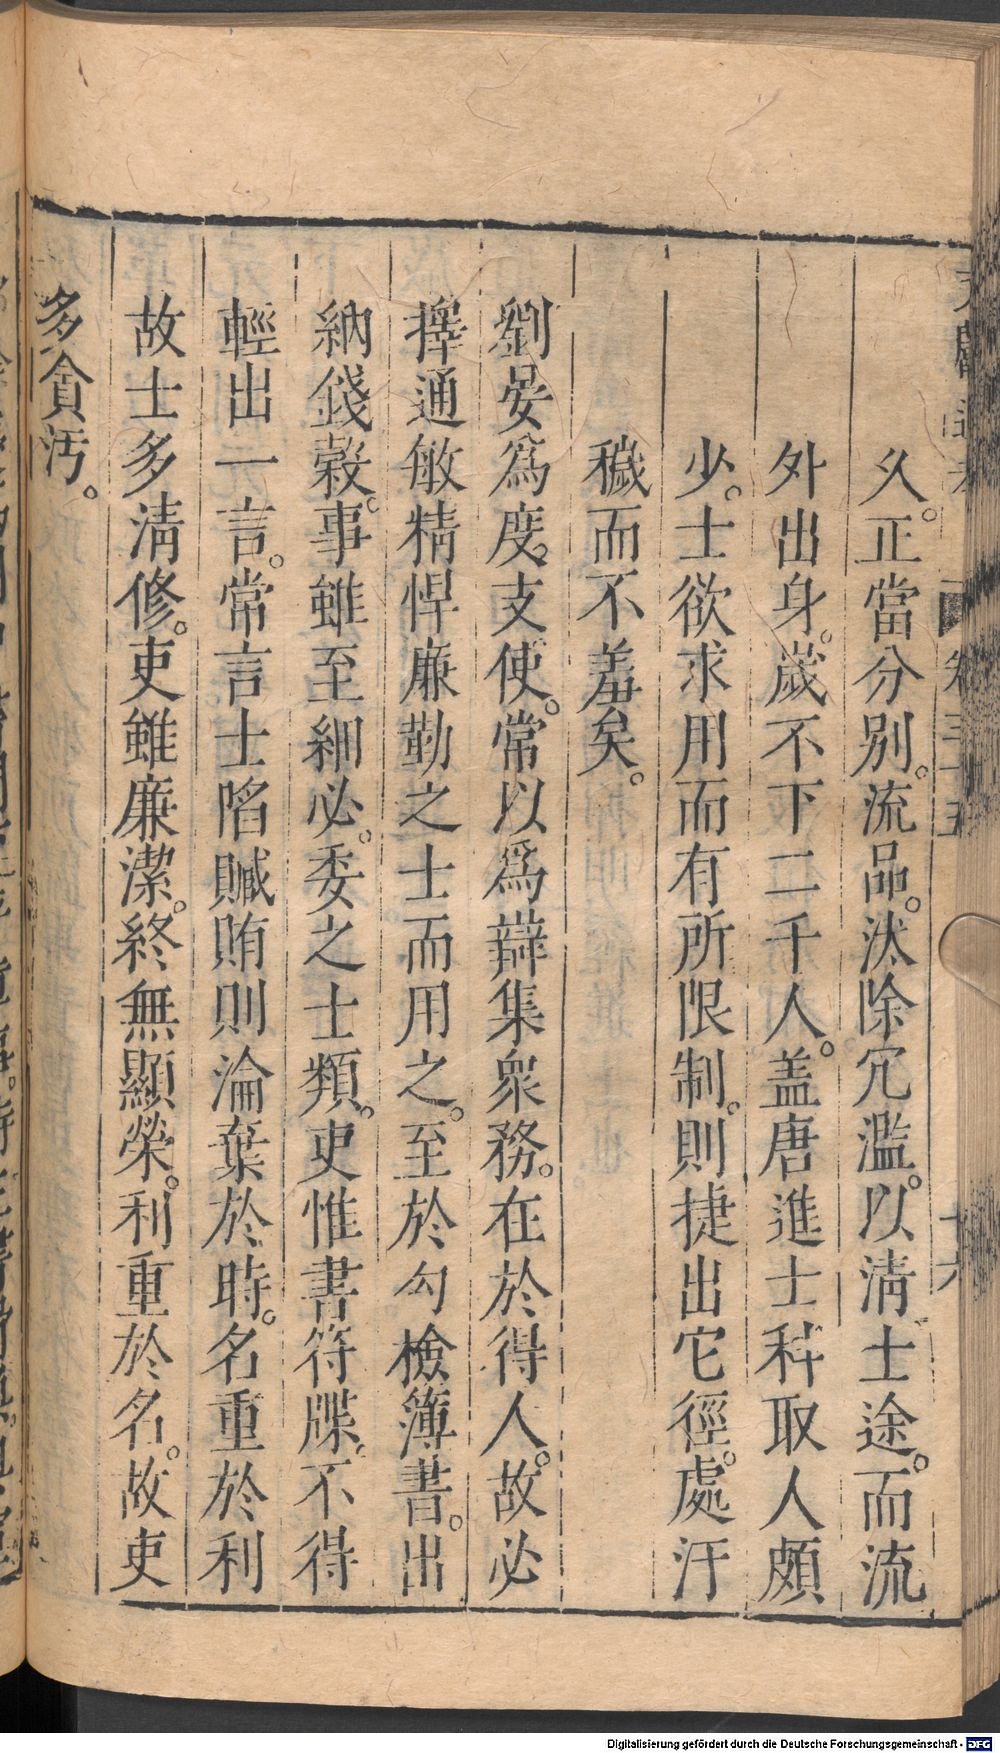 文獻通考 卷三十五 十六
久。正當分別。流品。汰除冗濫。以清士途。而流
外出身。歲不下二千人。盖唐進士科取人頗
少。士欲求用而有所限制。則捷出它徑。處汙
穢而不羞矣。
劉晏爲度支使。常以爲辦集衆務。在於得人。故必
擇通敏精悍廉勤之士而用之。至於勾檢簿書。出
納錢穀。事雖至細必。委之士類。吏惟書符牒。不得
輕出一言。常言士陷贓賄則淪棄於時。名重於利
故士多清修。吏雖廉潔。終無顯榮。利重於名。故吏
多貪汚。
Digitalisierung gefördert durch die Deutsche Forschungsgemeinschaft - DFG